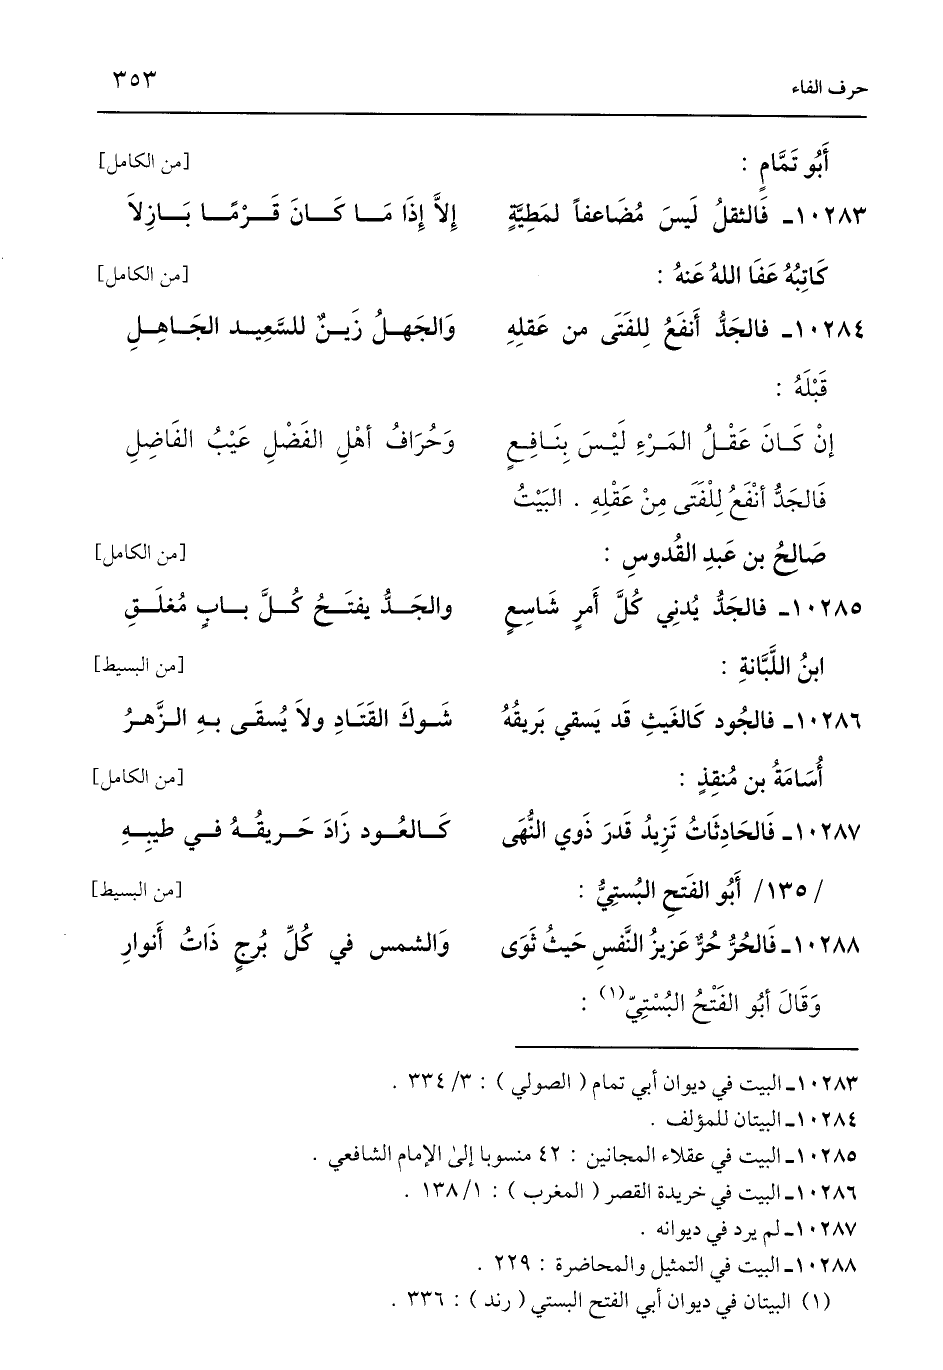 حرف الفاء ٣٥٣
أَبُو تَمَّامٍ : [من الكامل]
١٠٢٨٣ـ فَالثقلُ لَيسَ مُضَاعفاً لمَطِيَّةٍ إِلاَّ إِذَا مَا كَانَ قَرْمًا بَازِلاَ
كَاتِبُهُ عَفَا اللهُ عَنهُ : [من الكامل]
١٠٢٨٤ـ فالجَدُّ أَنفَعُ لِلفَتَى من عَقلِهِ وَالجَهلُ زَينٌ للسَّعِيد الجَاهِلِ
قَبْلَهُ :
إنْ كَانَ عَقْلُ المَرْءِ لَيْسَ بِنَافِعٍ وَحُرَافُ أهْلِ الفَضْلِ عَيْبُ الفَاضِلِ
فَالجَدُّ أنْفَعُ لِلْفَتَى مِنْ عَقْلِهِ . البَيْتُ
صَالِحُ بن عَبدِ القُدوسِ : [من الكامل]
١٠٢٨٥ـ فالجَدُّ يُدنِي كُلَّ أَمرٍ شَاسِعٍ والجَدُّ يفتَحُ كُلَّ بابٍ مُغلَقِ
ابنُ اللَّبَّانَةِ : [من البسيط]
١٠٢٨٦ـ فالجُود كَالغَيثِ قَد يَسقي بَريقُهُ شَوكَ القَتَادِ ولاَ يُسقَى بهِ الزَّهرُ
أُسَامَةُ بن مُنقِذٍ : [من الكامل]
١٠٢٨٧ـ فَالحَادِثَاتُ تَزِيدُ قَدرَ ذَوي النُّهَى كَالعُود زَادَ حَريقُهُ في طيبِهِ
/١٣٥/ أَبُو الفَتحِ البُستِيُّ : [من البسيط]
١٠٢٨٨ـ فَالحُرُّ حُرٌّ عَزيزُ النَّفسِ حَيثُ ثَوَى وَالشمس في كُلِّ بُرجٍ ذَاتُ أَنوارِ
وَقَالَ أبُو الفَتْحُ البُسْتِيّ(١) :
١٠٢٨٣ـ البيت في ديوان أبي تمام ( الصولي ) : ٣/ ٣٣٤ .
١٠٢٨٤ـ البيتان للمؤلف .
١٠٢٨٥ـ البيت في عقلاء المجانين : ٤٢ منسوبا إلىٰ الإمام الشافعي .
١٠٢٨٦ـ البيت في خريدة القصر ( المغرب ) : ١/ ١٣٨ .
١٠٢٨٧ـ لم يرد في ديوانه .
١٠٢٨٨ـ البيت في التمثيل والمحاضرة : ٢٢٩ .
(١) البيتان في ديوان أبي الفتح البستي ( رند ) : ٣٣٦ .